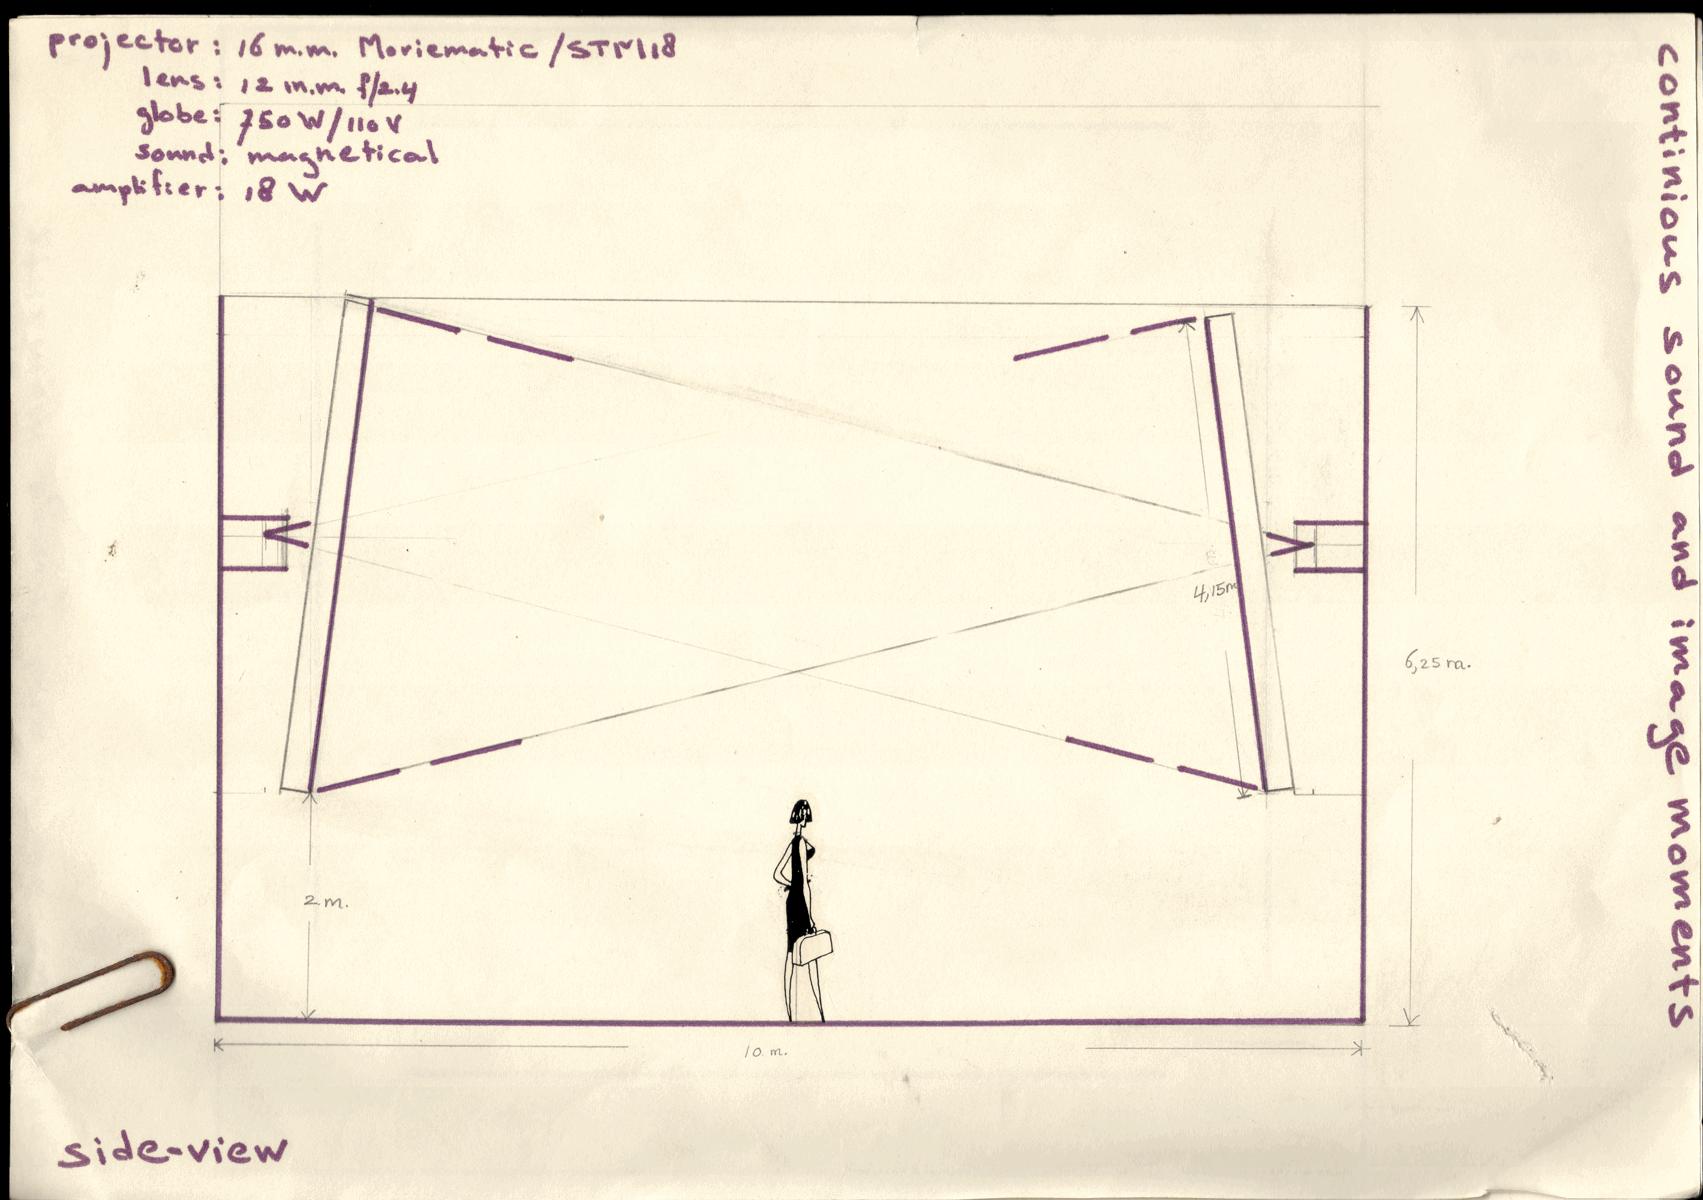 projector: 16 m.m. Moviematic/STM18
lens: 12 m.m. f/2.4
globe: 750 W/110 V
sound: magnetical
amplifier: 18 W
continious sound and image moments
4,15m
6,25 m.
2 m.
10 m.
side-view